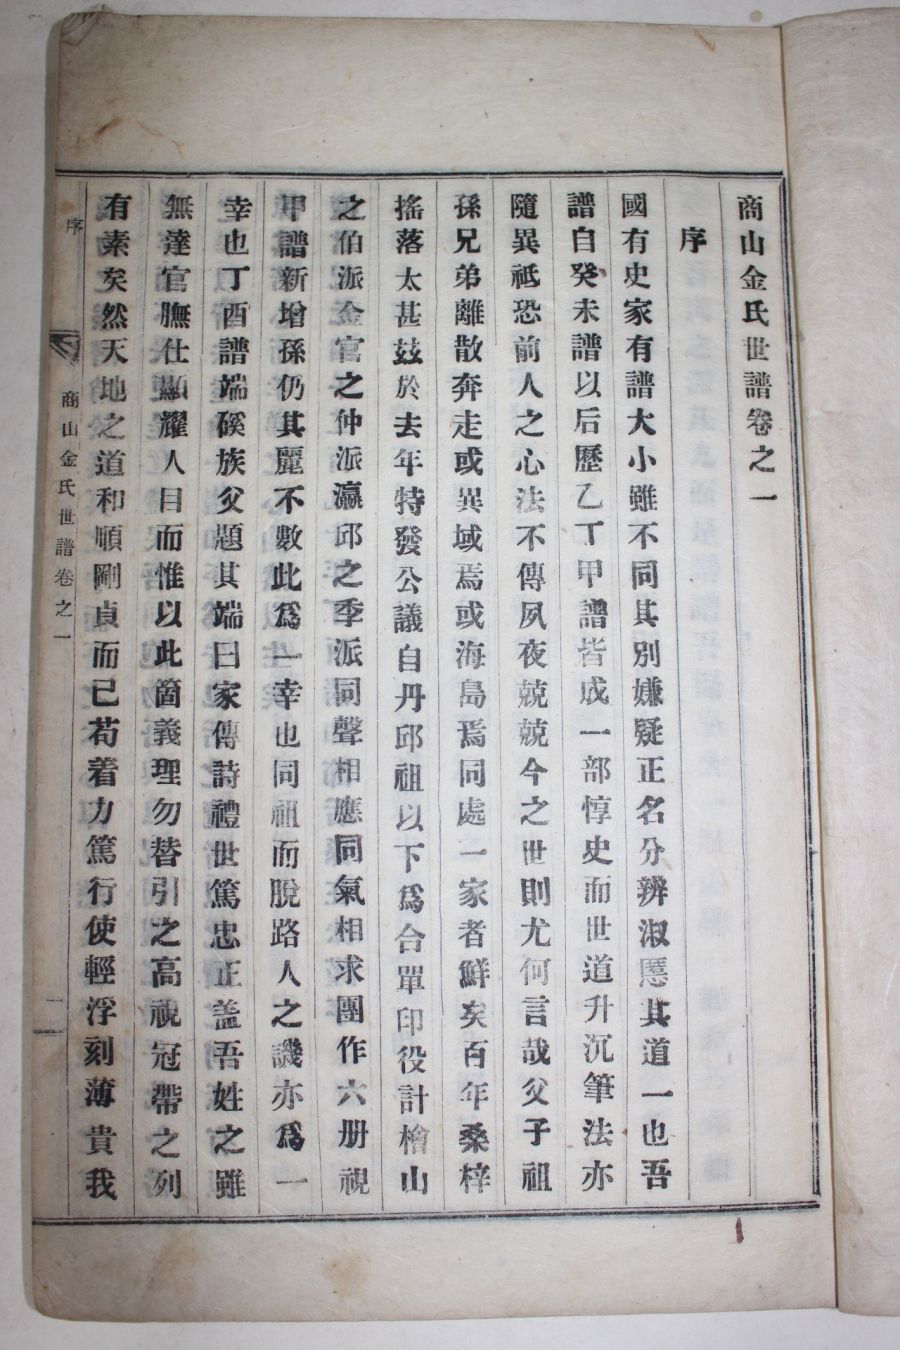 商山金氏世譜卷之一
序
國有史家有譜大小雖不同其別嫌疑正名分辨淑慝其道一也吾
譜自癸未譜以后歷乙丁甲譜皆成一部惇史而世道升沉筆法亦
隨異祗恐前人之心法不傳夙夜兢兢今之世則尤何言哉父子祖
孫兄弟離散奔走或異域焉或海島焉同處一家者鮮矣百年桑梓
搖落太甚玆於去年特發公議自丹邱祖以下爲合單印役計檜山
之伯派金官之仲派瀛邱之季派同聲相應同氣相求團作六册視
甲譜新增孫仍其麗不數此爲一幸也同祖而脫路人之譏亦爲一
幸也丁酉譜端磎族父題其端曰家傳詩禮世篤忠正盖吾姓之雖
無達官膴仕顯耀人目而惟以此箇義理勿替引之高視冠帶之列
有素矣然天地之道和順剛貞而已苟着力篤行使輕浮刻薄貴我
序
商山金氏世譜卷之一